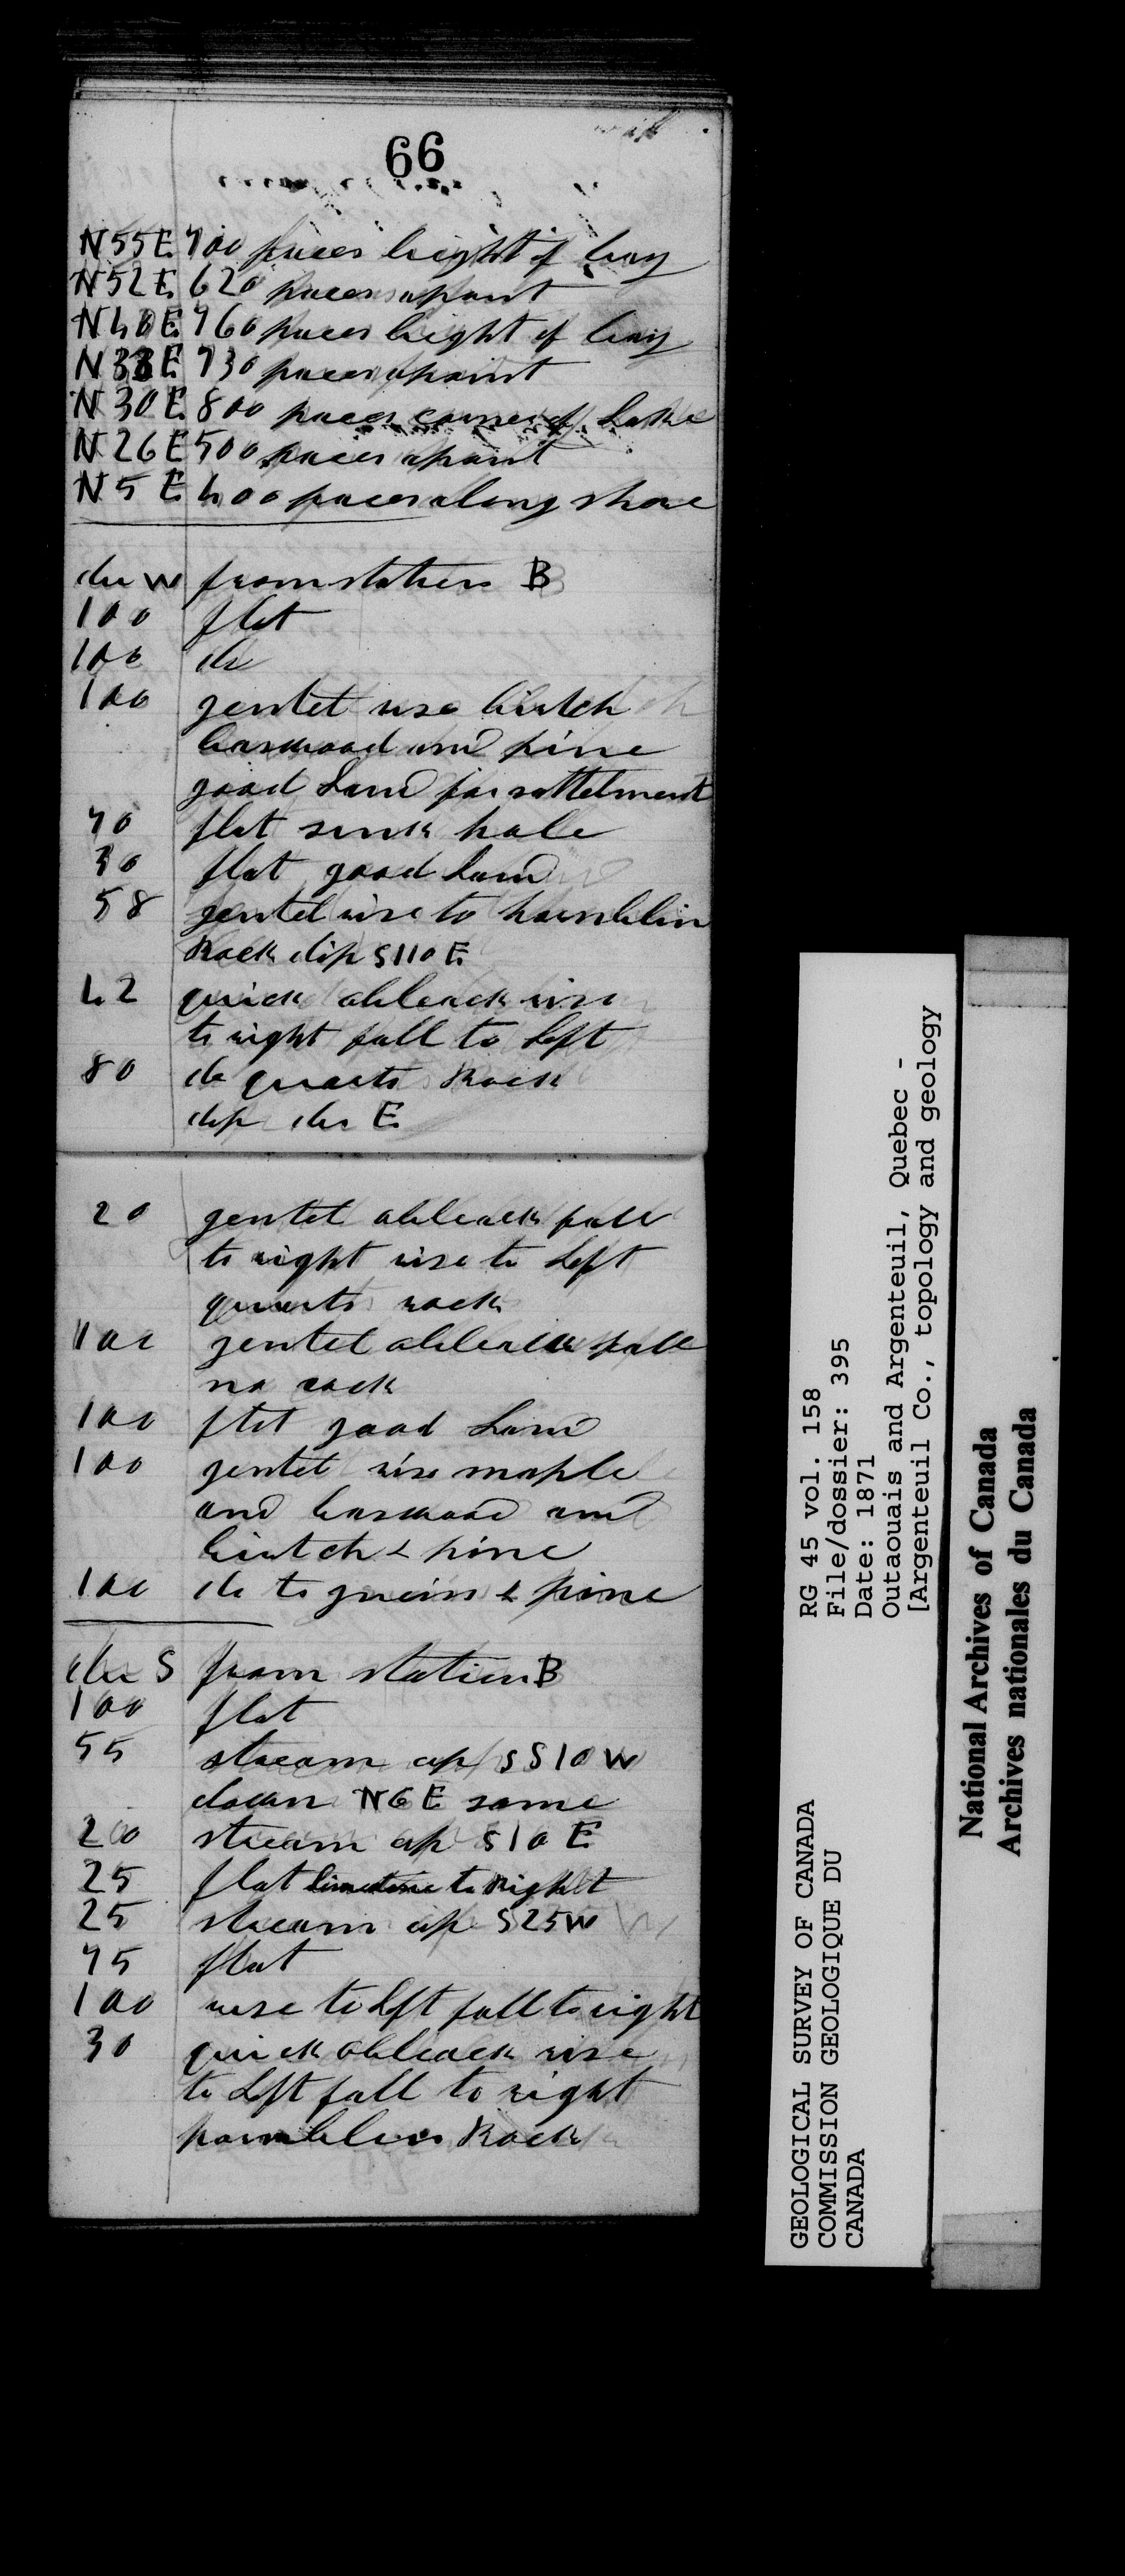 66
N55E 700 paces hight of bay
N52E 620 paces apoint
N40E 760 paces hight of bay
N33E 730 paces apoint
N30E 800 paces corner of Lake
N26E 500 paces apoint
N5E 400 paces along shore
du W from station B
100 flat
100 do
100 gentel rise birtch
baswood and pine
good Land for settelment
70 flat sink hole
30 flat good Land
58 gentel rise to hornblin
Rock dip S110E
42 quick obleack rise
to right fall to Left
80 do quarts Rock
dip du E
20 gentel obleack fall
to right rise to Left
quarts rock
100 gentel obleack fall
no rock
100 flat good Land
100 gentel rise maple
and baswood and
birtch & pine
100 do to gneiss & pine
du S from station B
100 flat
55 stream up S S10W
down N6E same
20 stream up S10E
25 flat limestone to Right
25 stream up S25W
75 flat
100 rise to Left fall to right
30 quick obleack rise
to Left fall to right
hornblin Rock
GEOLOGICAL SURVEY OF CANADA
COMMISSION GEOLOGIQUE DU
CANADA
RG 45 vol. 158
File/dossier: 395
Date: 1871
Outaouais and Argenteuil, Quebec -
[Argenteuil Co., topology and geology
National Archives of Canada
Archives nationales du Canada